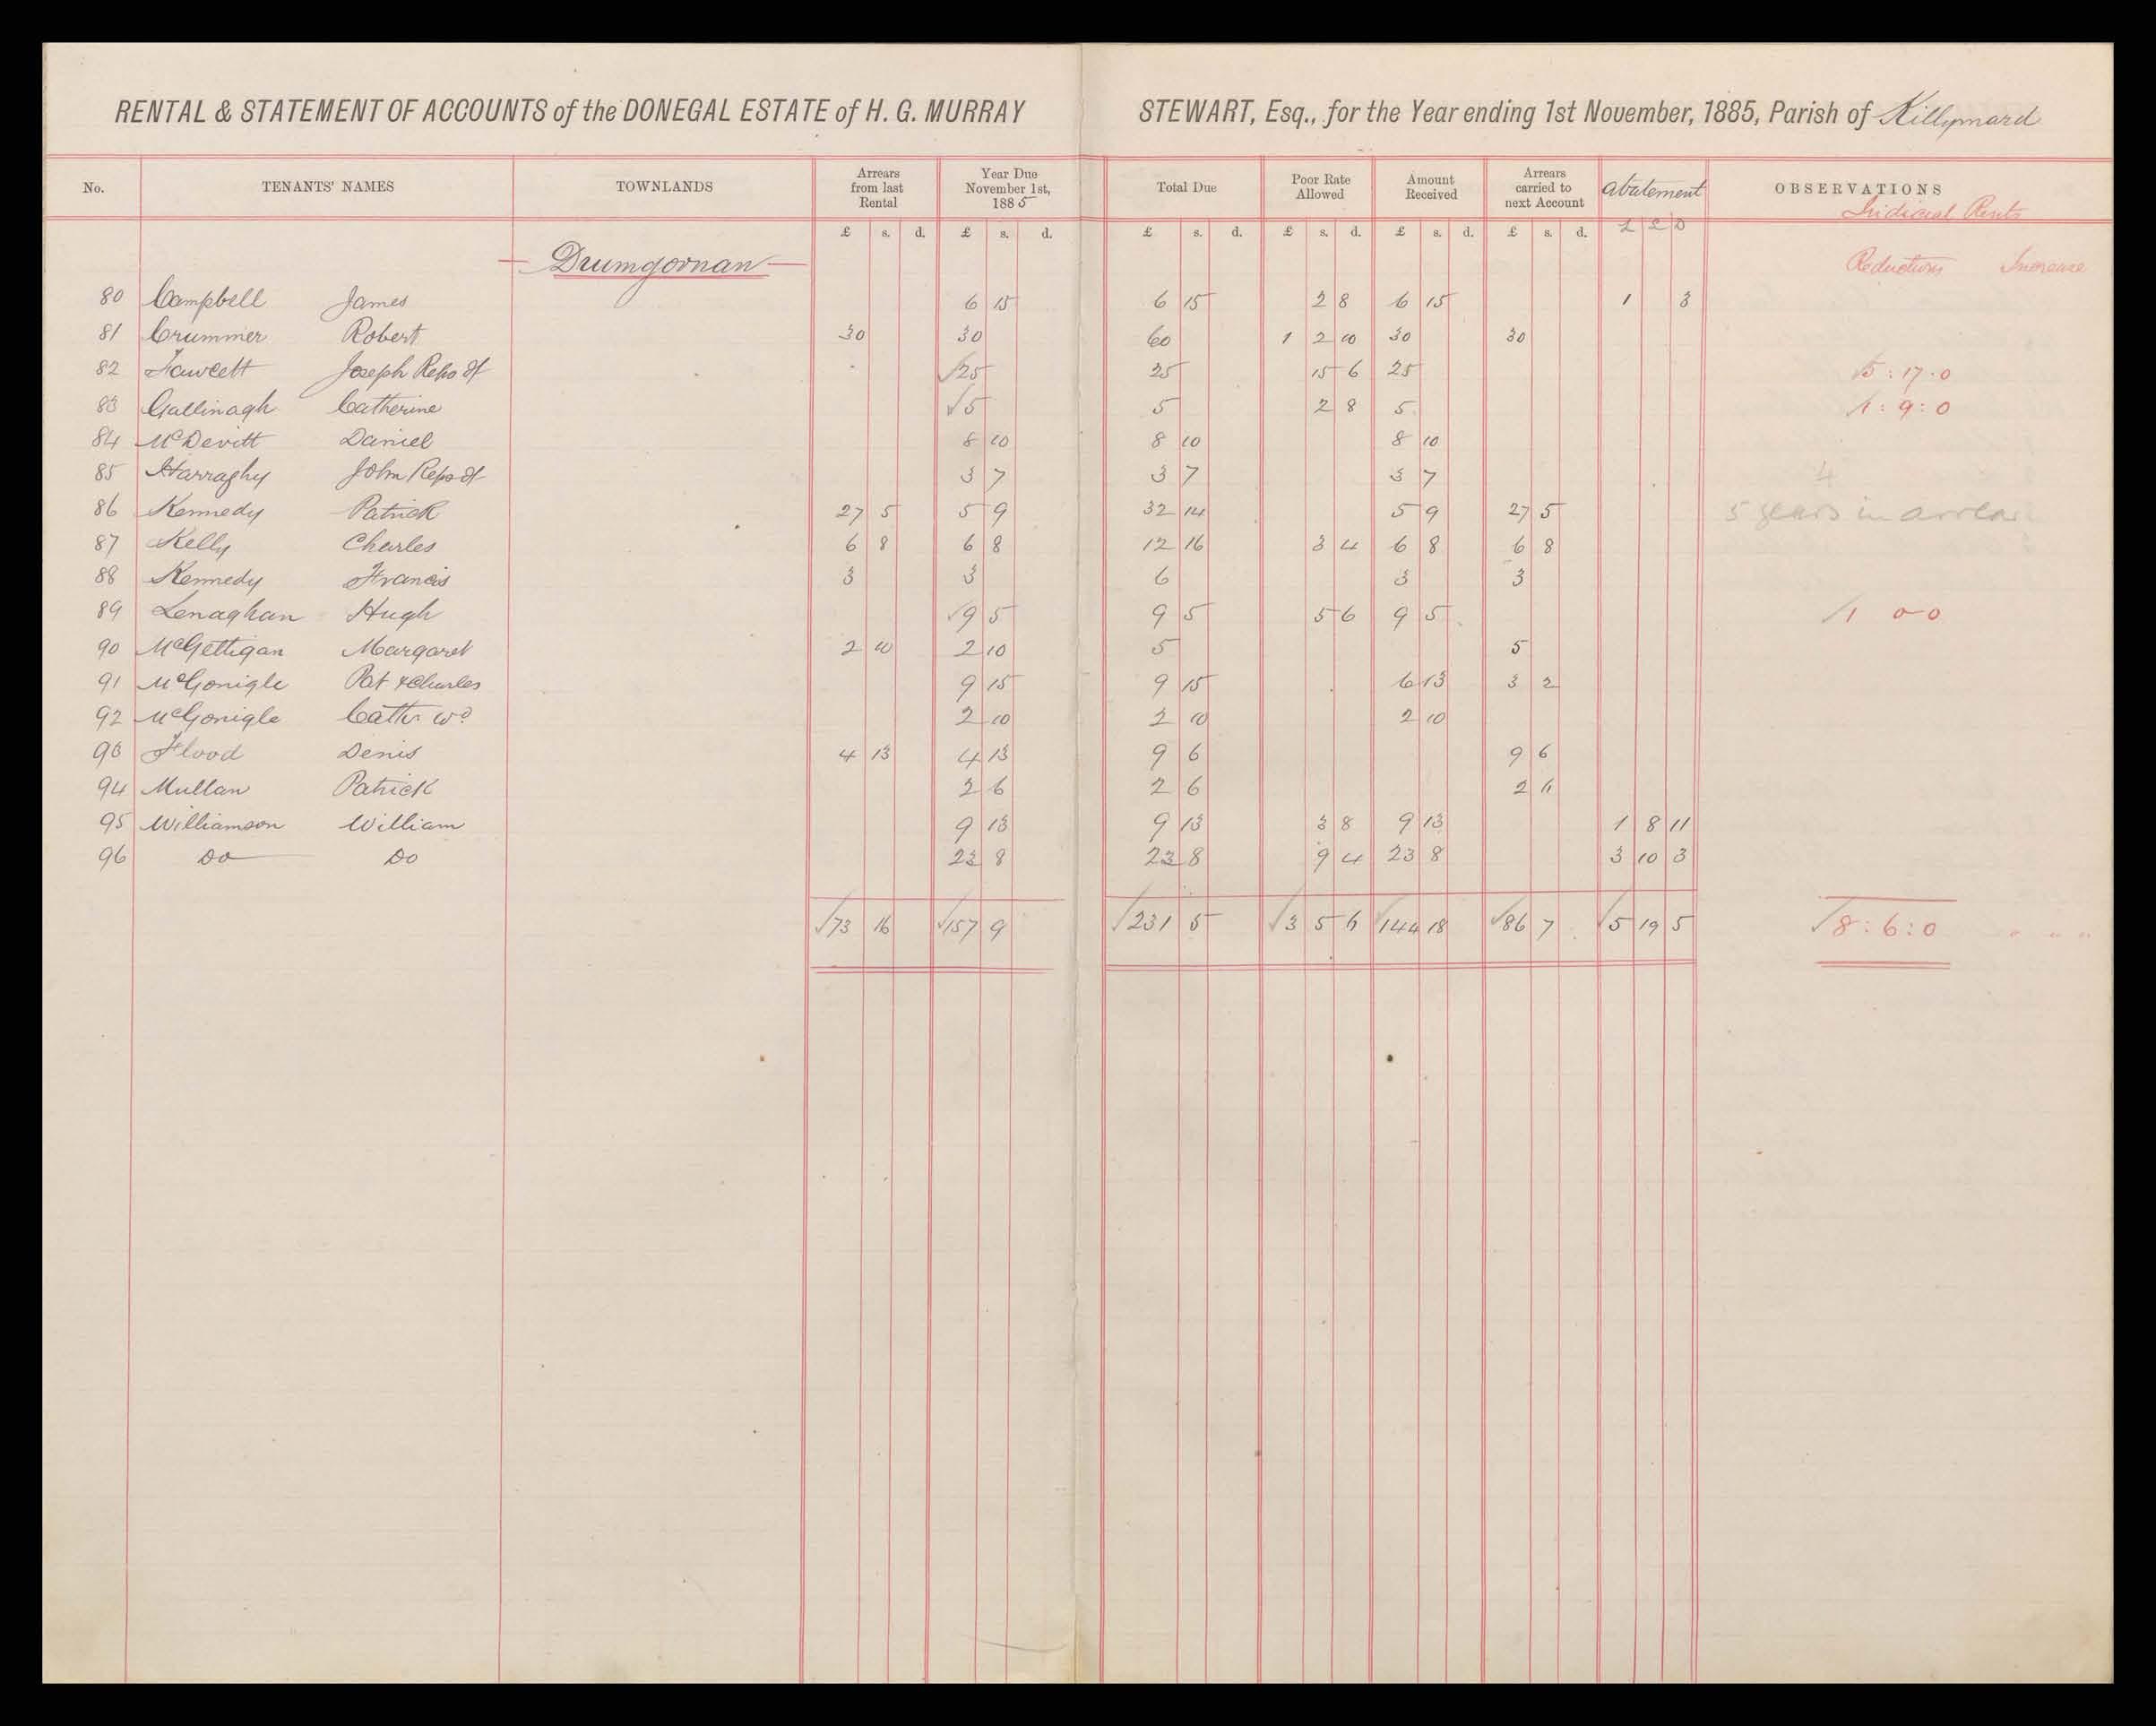 RENTAL & STATEMENT OF ACCOUNTS of the DONEGAL ESTATE of H. G. MURRAY STEWART, Esq., for the Year ending 1st November, 1885, Parish of Killymard
No. TENANTS' NAMES TOWNLANDS Arrears from last Rental Year Due November 1st, 1885 Total Due Poor Rate Allowed Amount Received Arrears carried to next Account Abatement OBSERVATIONS
Judicial Rents
£ s. d. £ s. d. £ s. d. £ s. d. £ s. d. £ s. d. £ S D
Drumgornan Reduction Increase
80 Campbell James 6 15 6 15 2 8 6 15 1 3
81 Crummer Robert 30 30 60 1 2 10 30 30
82 Fawcett Joseph Reps of 25 25 15 6 25 5:17:0
83 Gallinagh Catherine 5 5 2 8 5 1:9:0
84 McDevitt Daniel 8 10 8 10 8 10
85 Harraghy John Reps of 3 7 3 7 3 7
4
86 Kennedy Patrick 27 5 5 9 32 14 5 9 27 5 5 years in arrear
87 Kelly Charles 6 8 6 8 12 16 3 4 6 8 6 8
88 Kennedy Francis 3 3 6 3 3
89 Lenaghan Hugh 9 5 9 5 5 6 9 5 1 0 0
90 McGettigan Margaret 2 10 2 10 5 5
91 McGonigle Pat & Charles 9 15 9 15 6 13 3 2
92 McGonigle Cathr Wd 2 10 2 10 2 10
93 Flood Denis 4 13 4 13 9 6 9 6
94 Mullan Patrick 2 6 2 6 2 6
95 Williamson William 9 13 9 13 3 8 9 13 1 8 11
96 Do Do 23 8 23 8 9 4 23 8 3 10 3
73 16 157 9 231 5 3 5 6 144 18 86 7 5 19 5 8:6:0 " " "